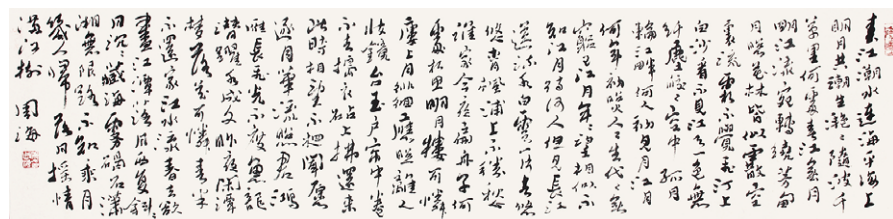 春江潮水連海平海上
明月共潮生灩灩随波千
萬里何處春江無月
明江流宛轉繞芳甸
月照花林皆似霰空
裏流霜不覺飛汀上
白沙看不見江天一色無
纖塵皎皎空中孤月
輪江畔何人初見月江月
何年初照人人生代代無
窮已江月年年望相似不
知江月待何人但見長江
送流水白雲一片去悠
悠青楓浦上不勝愁
誰家今夜扁舟子何
處相思明月樓可憐
樓上月徘徊應照離人
妝鏡台玉户簾中卷
不去擣衣砧上拂還來
此時相望不相聞願
逐月華流照君鴻
雁長飛光不度魚龍
潛躍水成文昨夜閑潭
夢落花可憐春半
不還家江水流春去欲
盡江潭落月西復斜斜
月沉沉藏海霧碣石瀟
湘無限路不知乘月
幾人歸落月摇情
滿江樹 周海